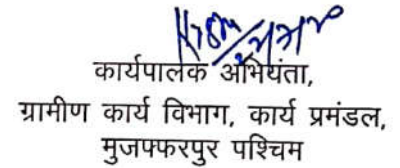 कार्यपालक अभियंता,
ग्रामीण कार्य विभाग, कार्य प्रमंडल,
मुजफ्फरपुर पश्चिम